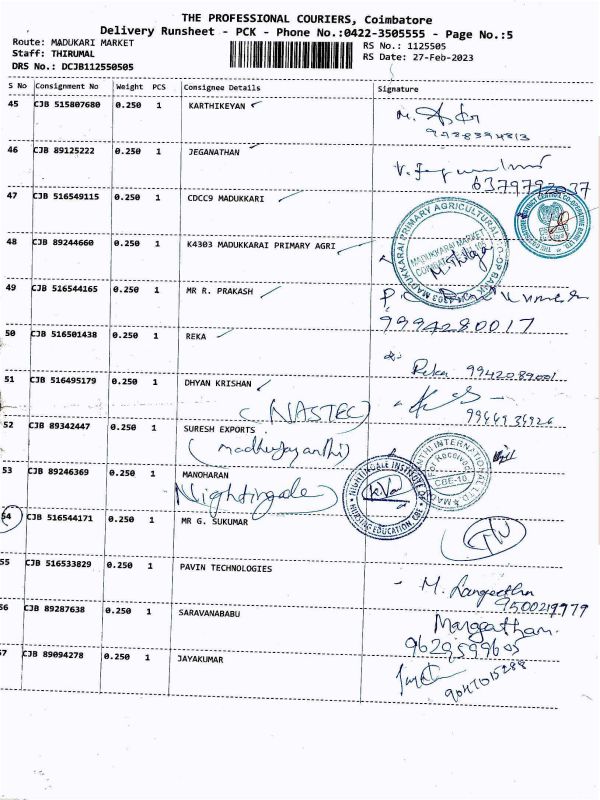 THE PROFESSIONAL COURIERS, Coimbatore
Delivery Runsheet - PCK - Phone No.:0422-3505555 - Page No.:5
Route: MADUKARI MARKET
RS No.: 1125505
Staff: THIRUMAL
RS Date: 27-Feb-2023
DRS No.: DCJB112550505
S No Consignment No Weight PCS Consignee Details Signature
45 CJB 515807680 0.250 1 KARTHIKEYAN
46 CJB 89125222 0.250 1 JEGANATHAN
6379792037
47 CJB 516549115 0.250 1 CDCC9 MADUKKARI
48 CJB 89244660 0.250 1 K4303 MADUKKARAI PRIMARY AGRI
MADUKKARAI PRIMARY AGRICULTURAL CO-OP BANK
MADUKKARAI MARKET
49 CJB 516544165 0.250 1 MR R. PRAKASH
9994280017
50 CJB 516501438 0.250 1 REKA
Reka 9942089001
51 CJB 516495179 0.250 1 DHYAN KRISHAN
(NASTEC)
52 CJB 89342447 0.250 1 SURESH EXPORTS
(madhujayanthi)
53 CJB 89246369 0.250 1 MANOHARAN
Nightingale
NIGHTINGALE INSTITUTE OF NURSING EDUCATION, CBE
54 CJB 516544171 0.250 1 MR G. SUKUMAR
55 CJB 516533829 0.250 1 PAVIN TECHNOLOGIES
M. Sangeetha
9500217779
56 CJB 89287638 0.250 1 SARAVANABABU
Mangatham.
9629599605
57 CJB 89094278 0.250 1 JAYAKUMAR
9047015288